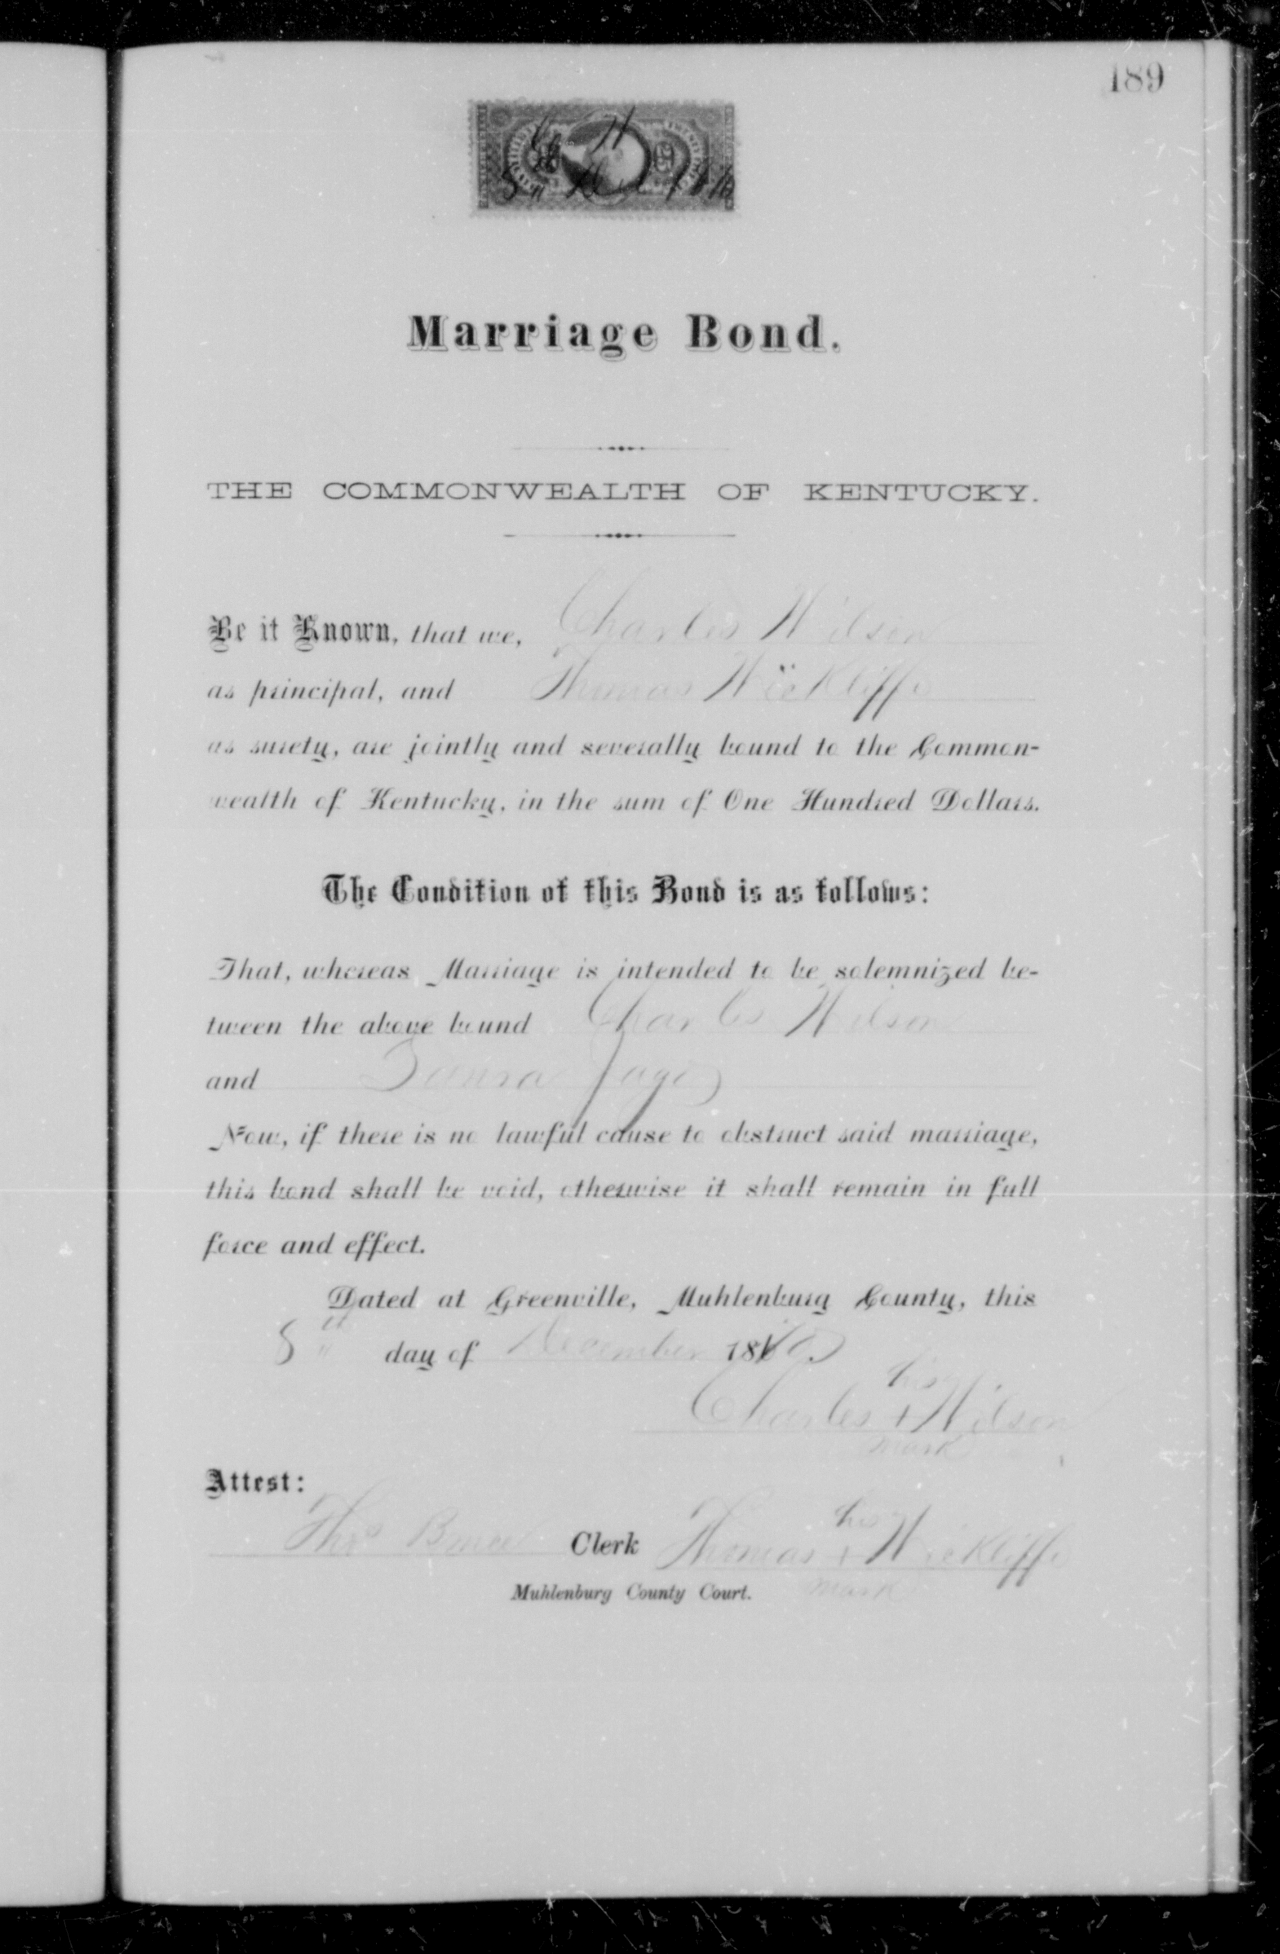 189
Marriage Bond.
THE COMMONWEALTH OF KENTUCKY.
Be it Known, that we, Charles Wilson
as principal, and Thomas Wickliffe
as surety, are jointly and severally bound to the Common-
wealth of Kentucky, in the sum of One Hundred Dollars.
The Condition of this Bond is as follows:
That, whereas Marriage is intended to be solemnized be-
tween the above bound Charles Wilson
and
Now, if there is no lawful cause to obstruct said marriage,
this bond shall be void, otherwise it shall remain in full
force and effect.
Dated at Greenville, Muhlenburg County, this
8th day of December 18
his
Charles + Wilson
mark
Attest:
his
Thos Clerk Thomas + Wickliffe
mark
Muhlenburg County Court.